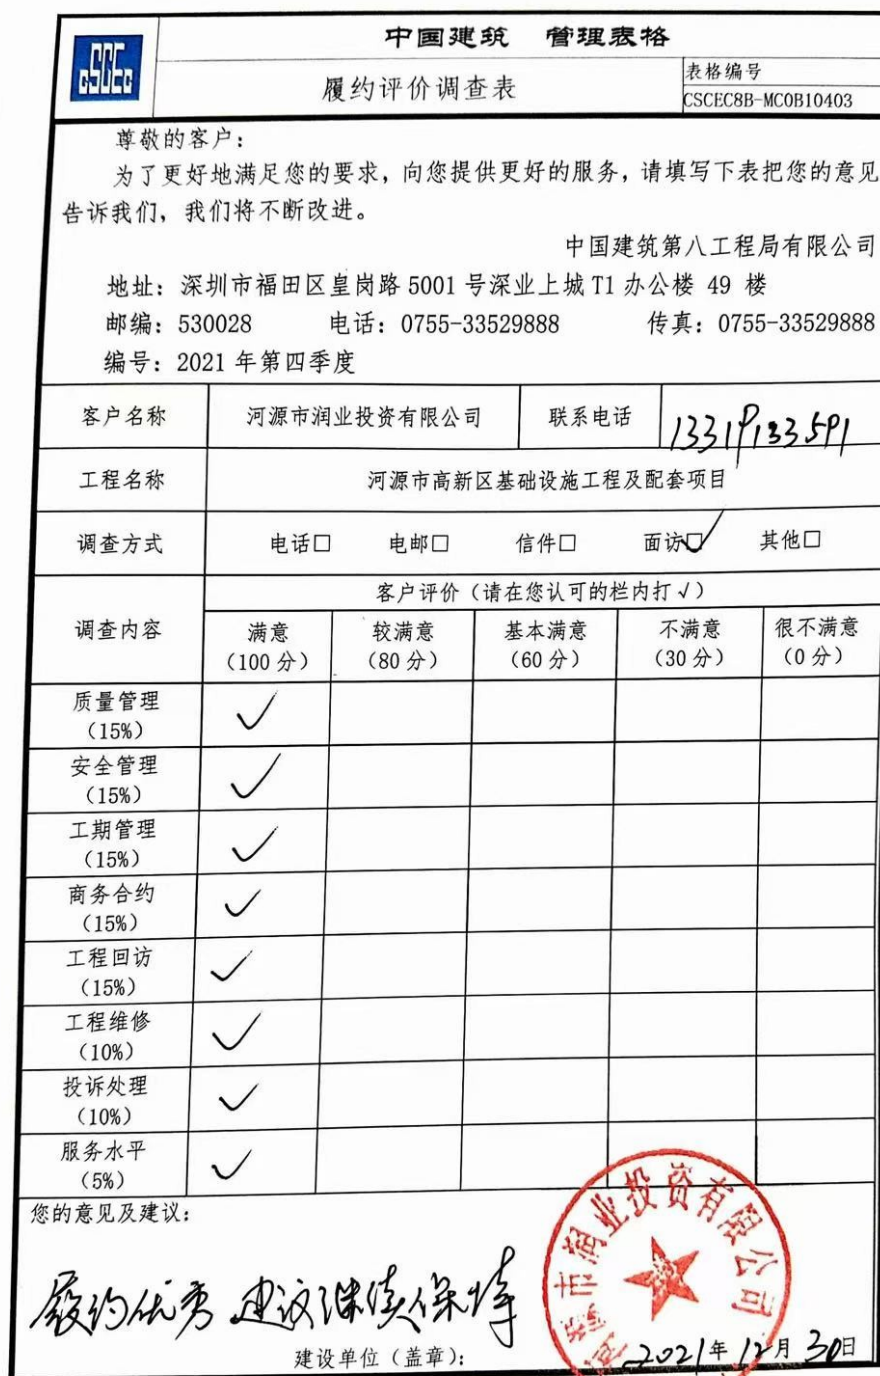 CSCEC
中国建筑 管理表格
履约评价调查表
表格编号
CSCEC8B-MC0B10403
尊敬的客户：
为了更好地满足您的要求，向您提供更好的服务，请填写下表把您的意见
告诉我们，我们将不断改进。
中国建筑第八工程局有限公司
地址：深圳市福田区皇岗路 5001 号深业上城 T1 办公楼 49 楼
邮编：530028 电话：0755-33529888 传真：0755-33529888
编号：2021 年第四季度
客户名称 河源市润业投资有限公司 联系电话 13319133591
工程名称 河源市高新区基础设施工程及配套项目
调查方式 电话□ 电邮□ 信件□ 面访□✓ 其他□
调查内容
客户评价（请在您认可的栏内打√）
满意 较满意 基本满意 不满意 很不满意
（100 分） （80 分） （60 分） （30 分） （0 分）
质量管理 ✓
（15%）
安全管理 ✓
（15%）
工期管理 ✓
（15%）
商务合约 ✓
（15%）
工程回访 ✓
（15%）
工程维修 ✓
（10%）
投诉处理 ✓
（10%）
服务水平 ✓
（5%）
您的意见及建议：
履约优秀 建议继续保持
建设单位（盖章）：
河源市润业投资有限公司
2021年 12月 30日